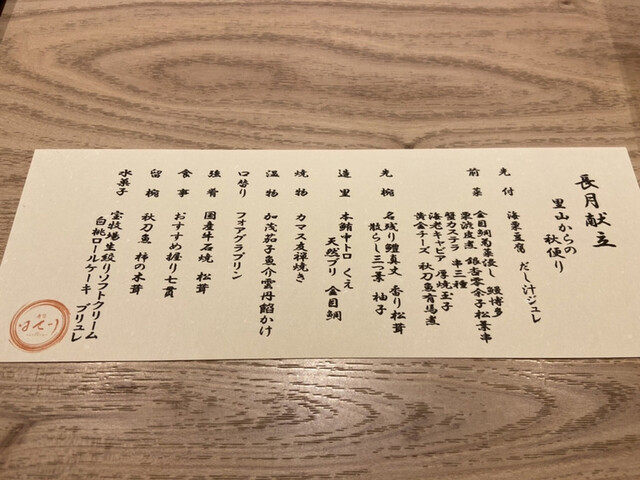 長月献立
里山からの
秋便り
先付　海栗豆腐　だし汁ジュレ
前菜　金目鯛菊菜浸し　鰻博多
栗渋皮煮　銀杏零余子松葉串
蟹カステラ　串三種
海老キャビア　厚焼玉子
黄金チーズ　秋刀魚有馬煮
先椀　名残り鱧真丈　香り松茸
散らし三つ葉　柚子
造里　本鮪中トロ　くえ
天然ブリ　金目鯛
焼物　カマス友禅焼き
温物　加茂茄子魚介雲丹餡かけ
口替り　フォアグラプリン
強肴　国産牛石焼　松茸
食事　おすすめ握り七貫
留椀　秋刀魚　柿の木茸
水菓子　宝牧場生絞りソフトクリーム
白桃ロールケーキ　ブリュレ